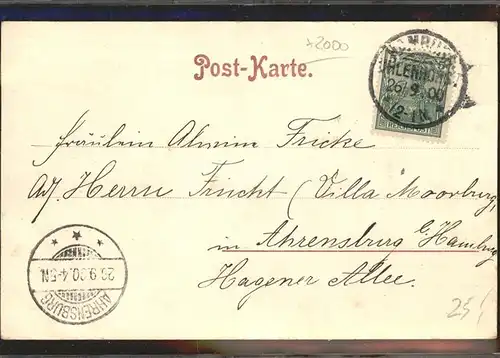 x2000
Post-Karte.
HAMBURG
UHLENHORST
26/9.00
1/2-1N.
REICHSPOST
Fräulein Alwim Fricke
Adr. Herrn Fincht (Villa Moorburg,
in Ahrensburg b/ Hamburg
Hagener Allee.
AHRENSBURG
26.9.00.4-5N.
25/